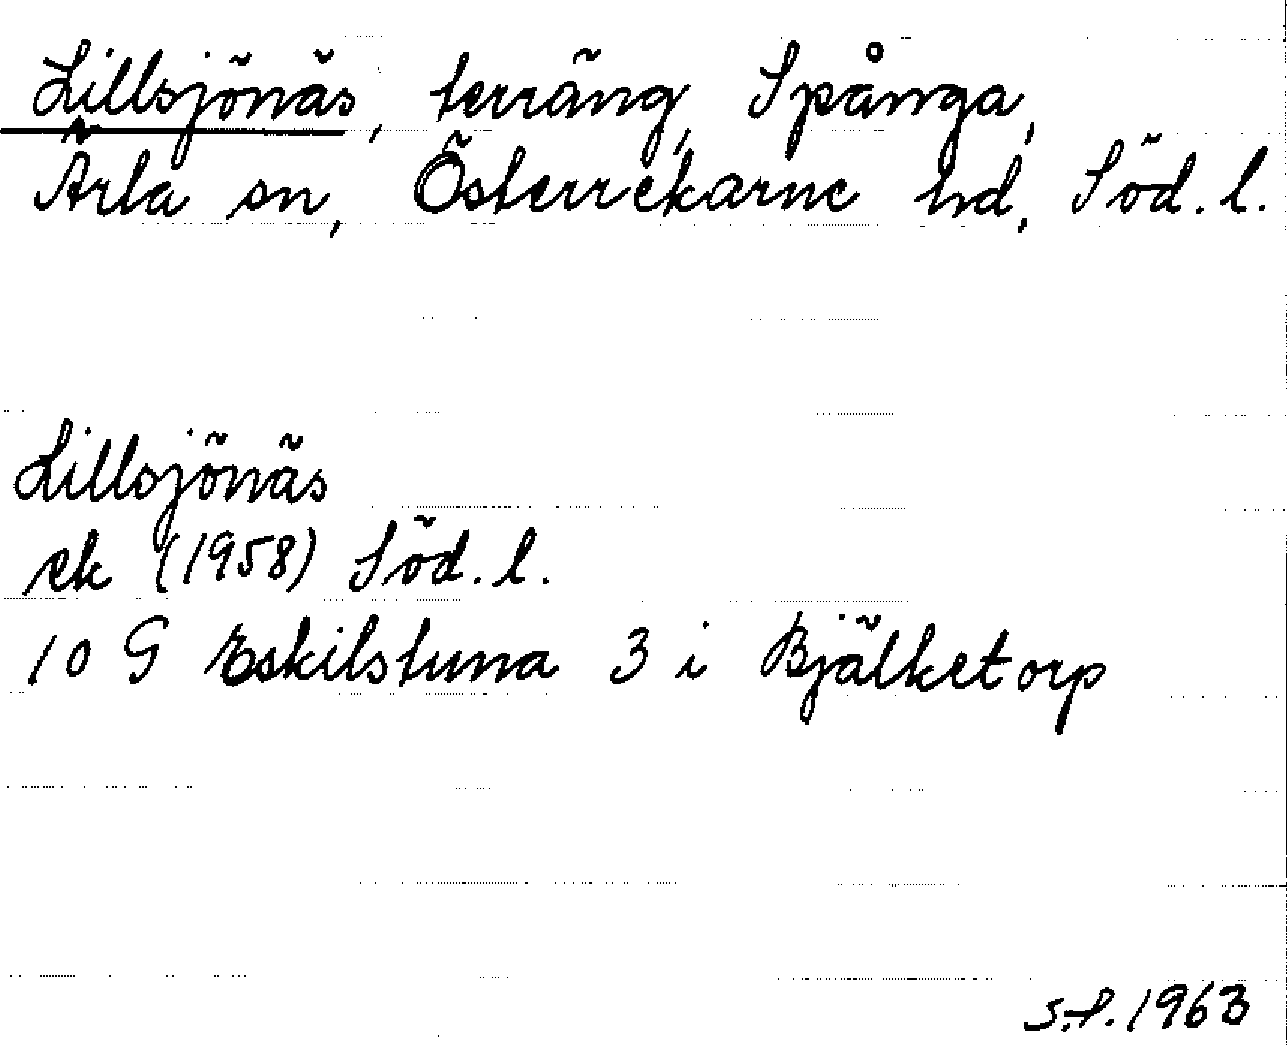 Lillsjönäs, terräng, Spånga,
Ärla sn, Österrekarne hd, Söd. l.
Lillsjönäs
ek (1958) Söd. l.
10 G Eskilstuna 3 i Bjälketorp
1963